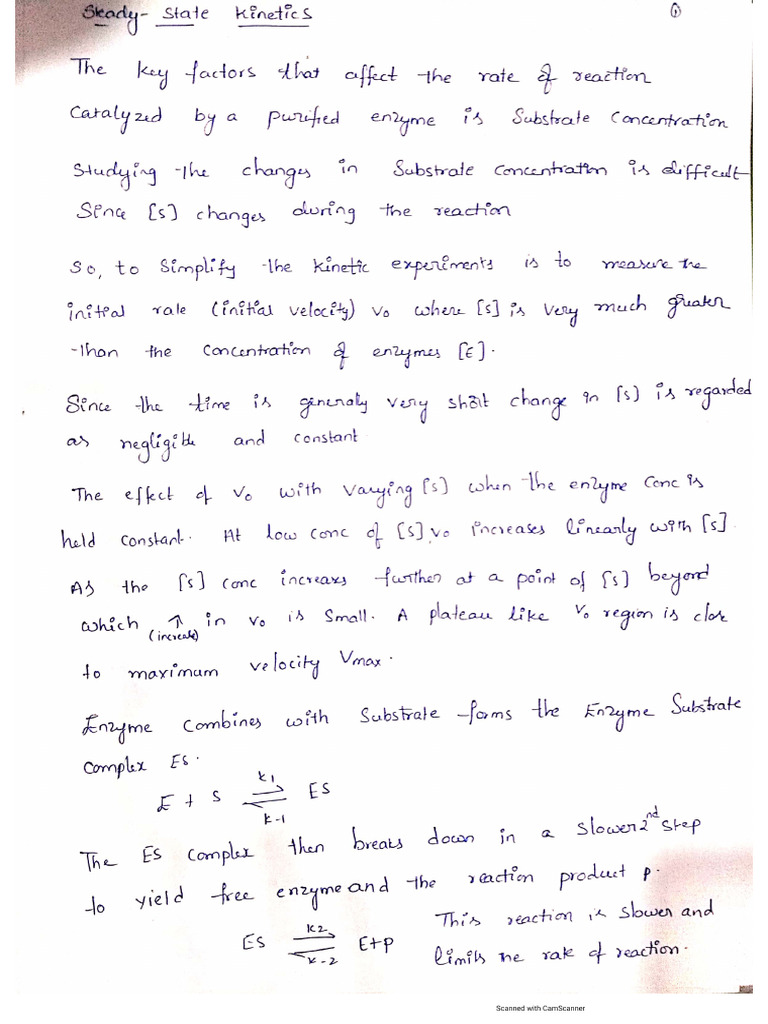 Steady-State Kinetics ①
The key factors that affect the rate of reaction
Catalyzed by a purified enzyme is Substrate Concentration
Studying the changes in Substrate concentration is difficult
Since [S] changes during the reaction
So, to simplify the kinetic experiments is to measure the
initial rate (initial velocity) V₀ where [S] is very much greater
than the concentration of enzymes [E].
Since the time is generaly very short change in [S] is regarded
as negligible and constant.
The effect of V₀ with varying [S] when the enzyme conc is
held constant. At low conc of [S], V₀ increases linearly with [S].
As the [S] conc increases further at a point of [S] beyond
which ↑ in V₀ is small. A plateau like V₀ region is close
(increase)
to maximum velocity Vmax.
Enzyme combines with Substrate forms the Enzyme Substrate
complex ES.
E + S ⇌ ES
k1
k-1
The ES complex then breaks down in a slower 2nd step
to yield free enzyme and the reaction product P.
ES ⇌ E+P
k2
k-2
This reaction is slower and
limits the rate of reaction.
Scanned with CamScanner